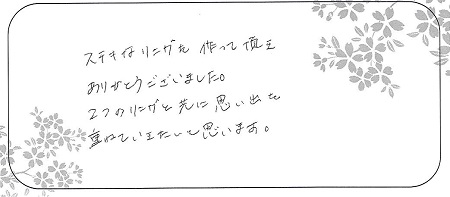 ステキなリングを作って頂き
ありがとうございました。
2つのリングと共に思い出を
重ねていきたいと思います。